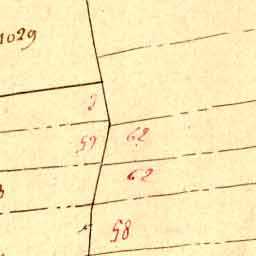 1029
2
59
62
62
58